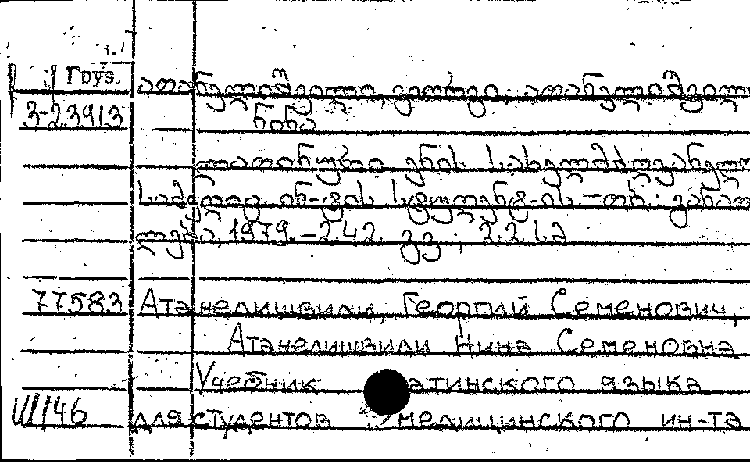 Груз.
ათანელიშვილი, გიორგი, ათანელიშვილი
3-23913
ნინა
ლათინური ენის სახელმძღვანელო
სამედიც. ინ-ტის სტუდენტ-ის.-თბ.: განათ
ლება, 1979.-242. გვ.; 22 სმ
77583 Атанелишвили, Георгий Семенович,
Атанелишвили Нина Семеновна
Учебник атинского языка
VII/46 для студентов медицинского ин-та